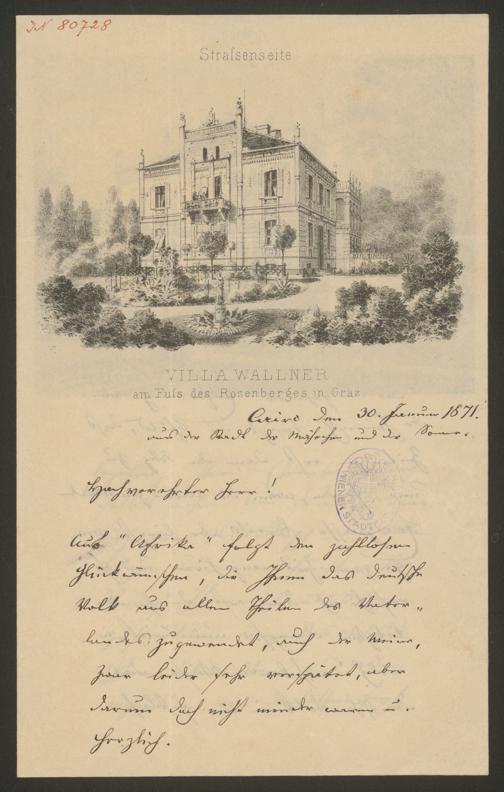 IN 80728
Strafsenseite
VILLA WALLNER
am Fufs des Rosenberges in Graz
Cairo den 30. Januar 1871.
aus der Stadt der Märchen und der Sonne.
WIENER STADT
Hochverehrter Herr!
Aus "Afrika" folgt den zahllosen
Glückwünschen, die Ihnen das deutsche
Volk aus allen Theilen des Vater„
landes zugewendet, auch der meine,
zwar leider sehr verspätet, aber
darum doch nicht minder warm u.
herzlich.